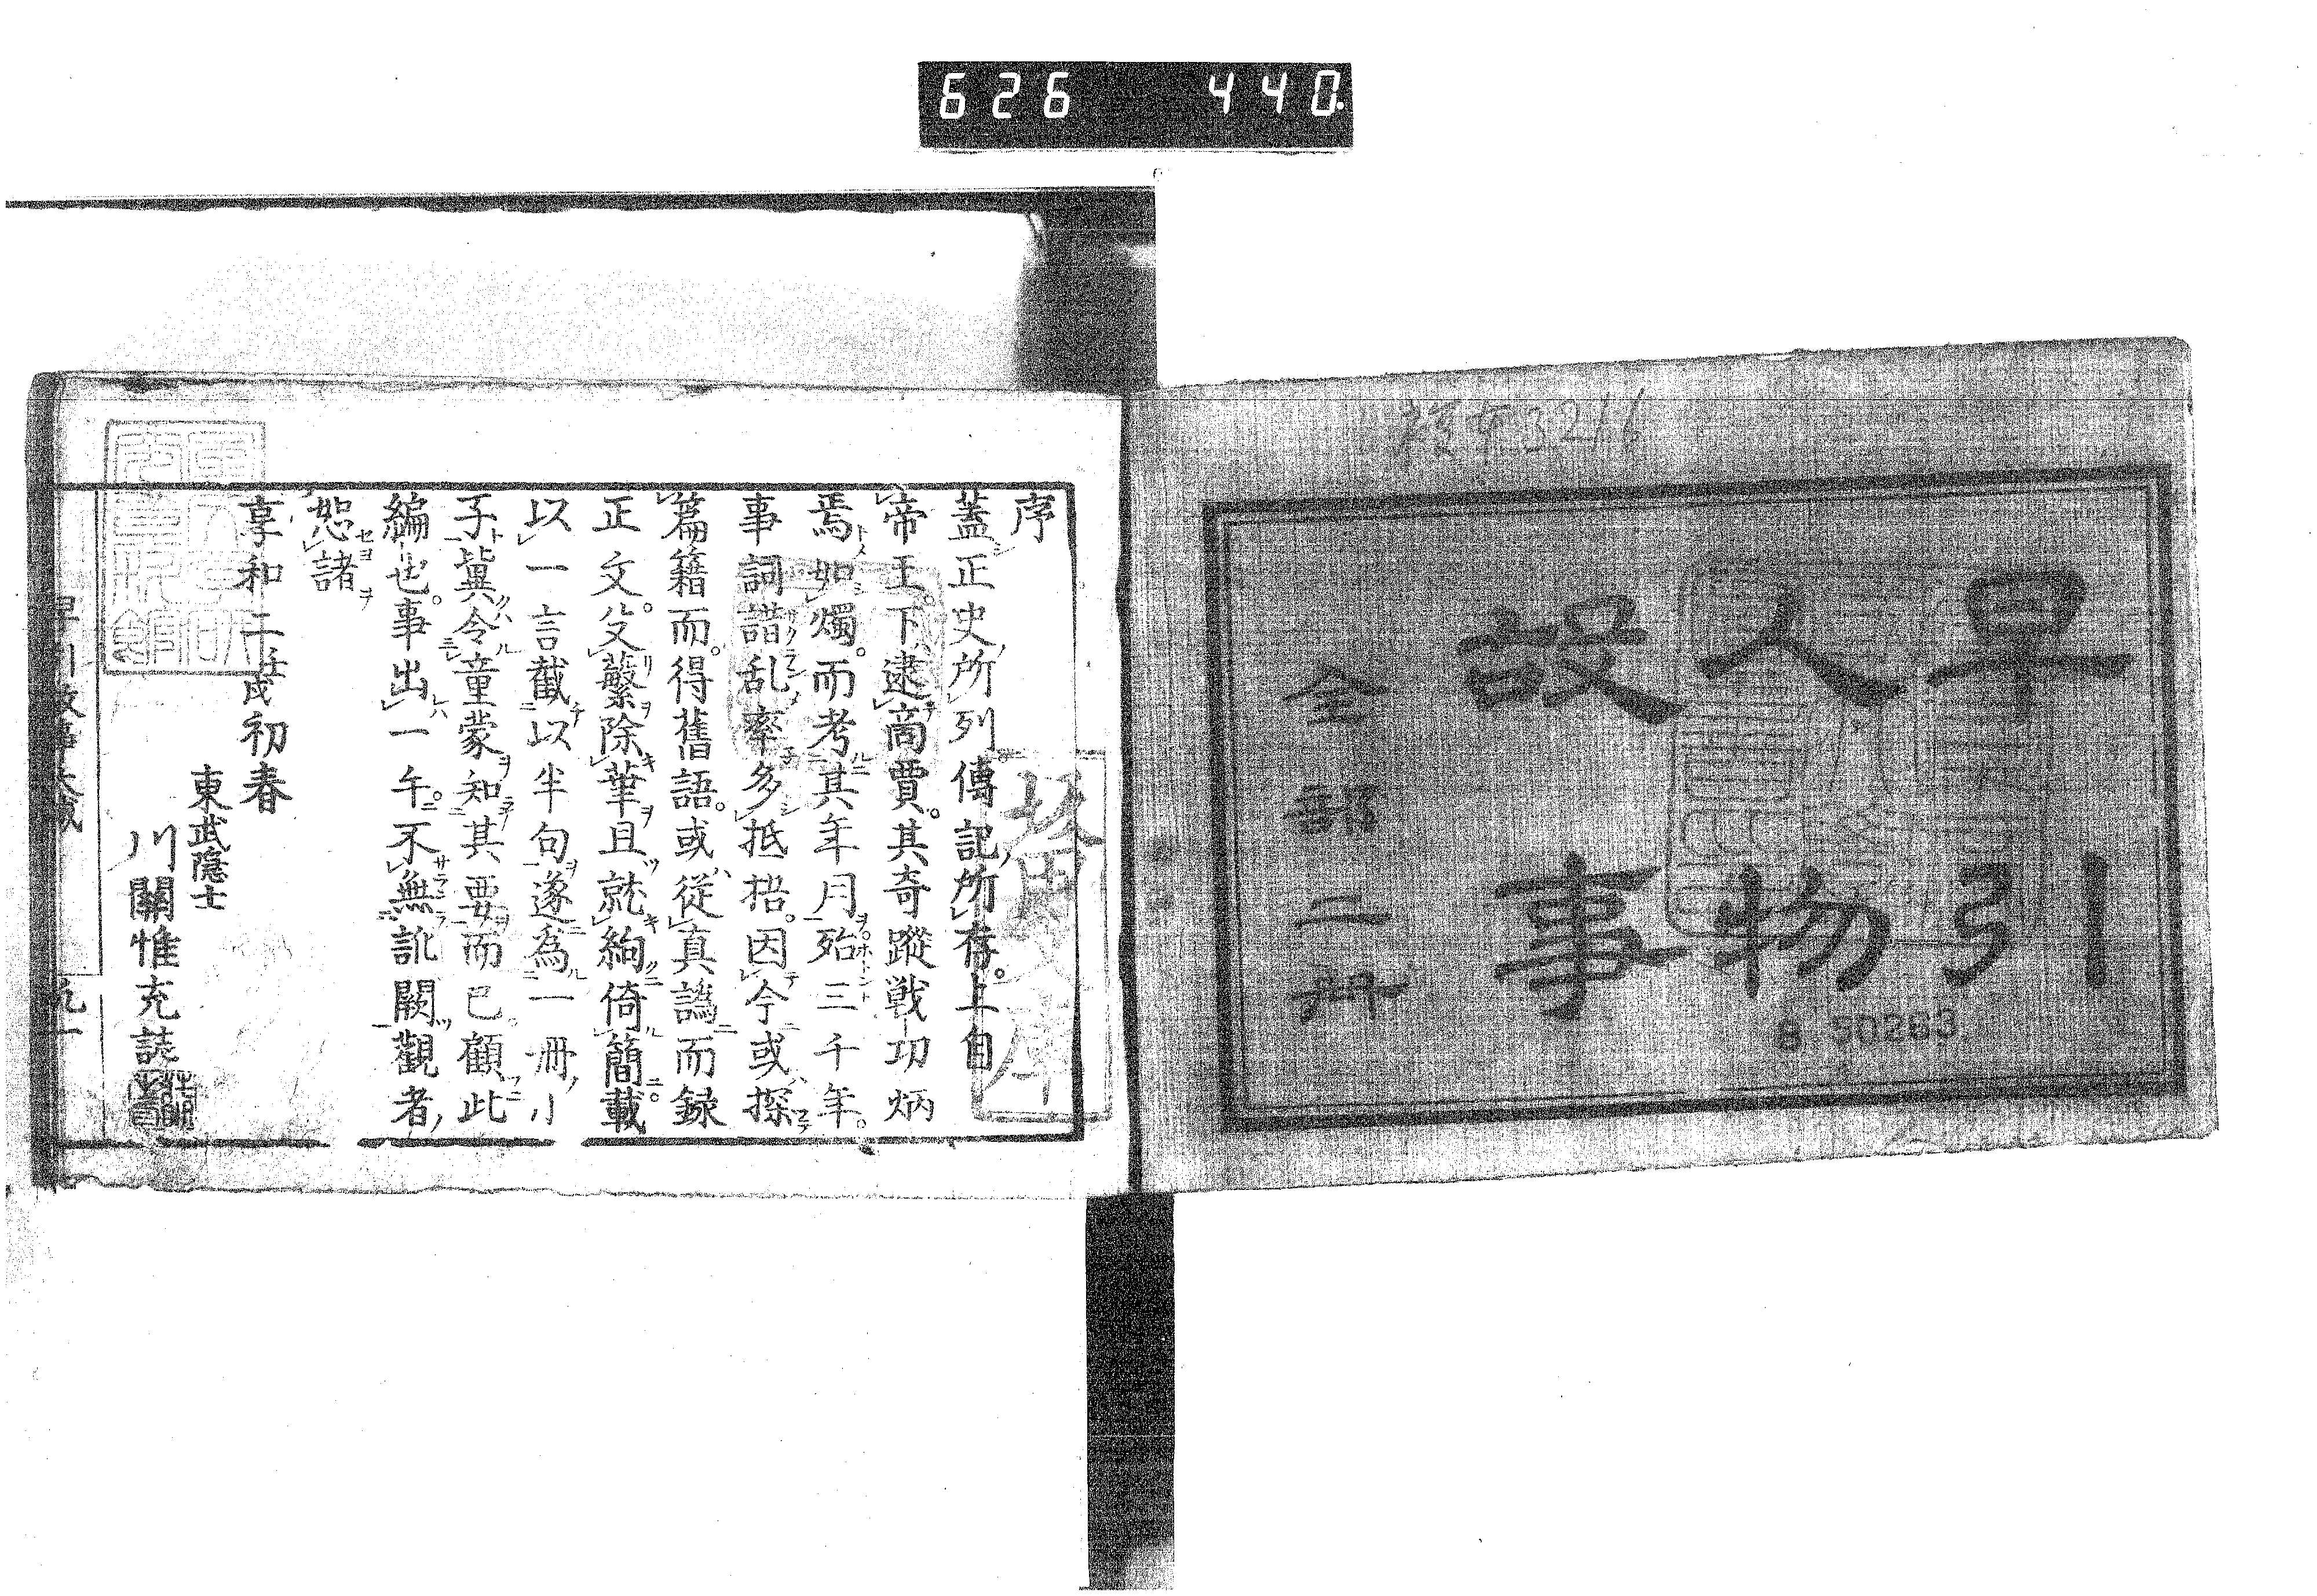 626 440.
早引
人物
故事
全部二冊
8 90263
3216
序
蓋正史所列傳記所存上自
帝王下逮商賈其奇蹤戦功炳
焉如燭而考其年月殆三千年
事詞譛乱率多抵梧因今或探
篇籍而得舊語或從真譌而録
正文父繁除筆且就絢倚簡載
以一言截以半句遂為一冊小
子冀令童蒙知其要而已顧此
編也事出一午不無訛闕觀者
恕諸
享和二壬戌初春
東武隠士
川關惟充誌